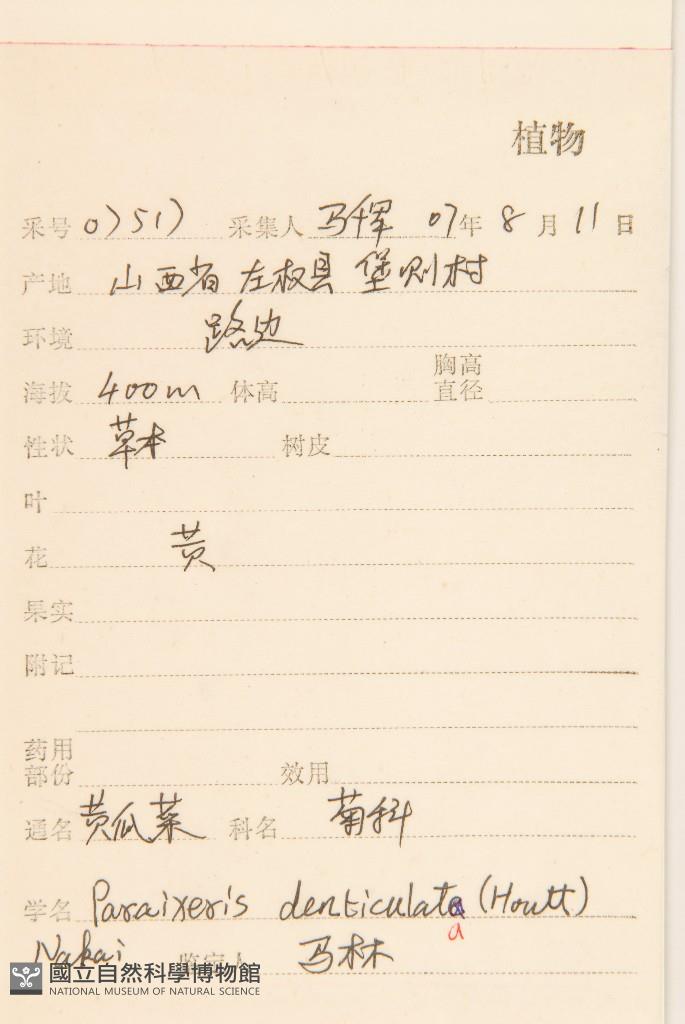 植物
采号 07517 采集人 马恽 07年 8 月 11 日
产地 山西省 左权县 堡则村
环境 路边
胸高
海拔 400m 体高 直径
性状 草本 树皮
叶
花 黄
果实
附记
药用
部份 效用
通名 黄瓜菜 科名 菊科
学名 Paraixeris denticulata (Houtt)
a
Nakai 鉴定人 马林
國立自然科學博物館
NATIONAL MUSEUM OF NATURAL SCIENCE